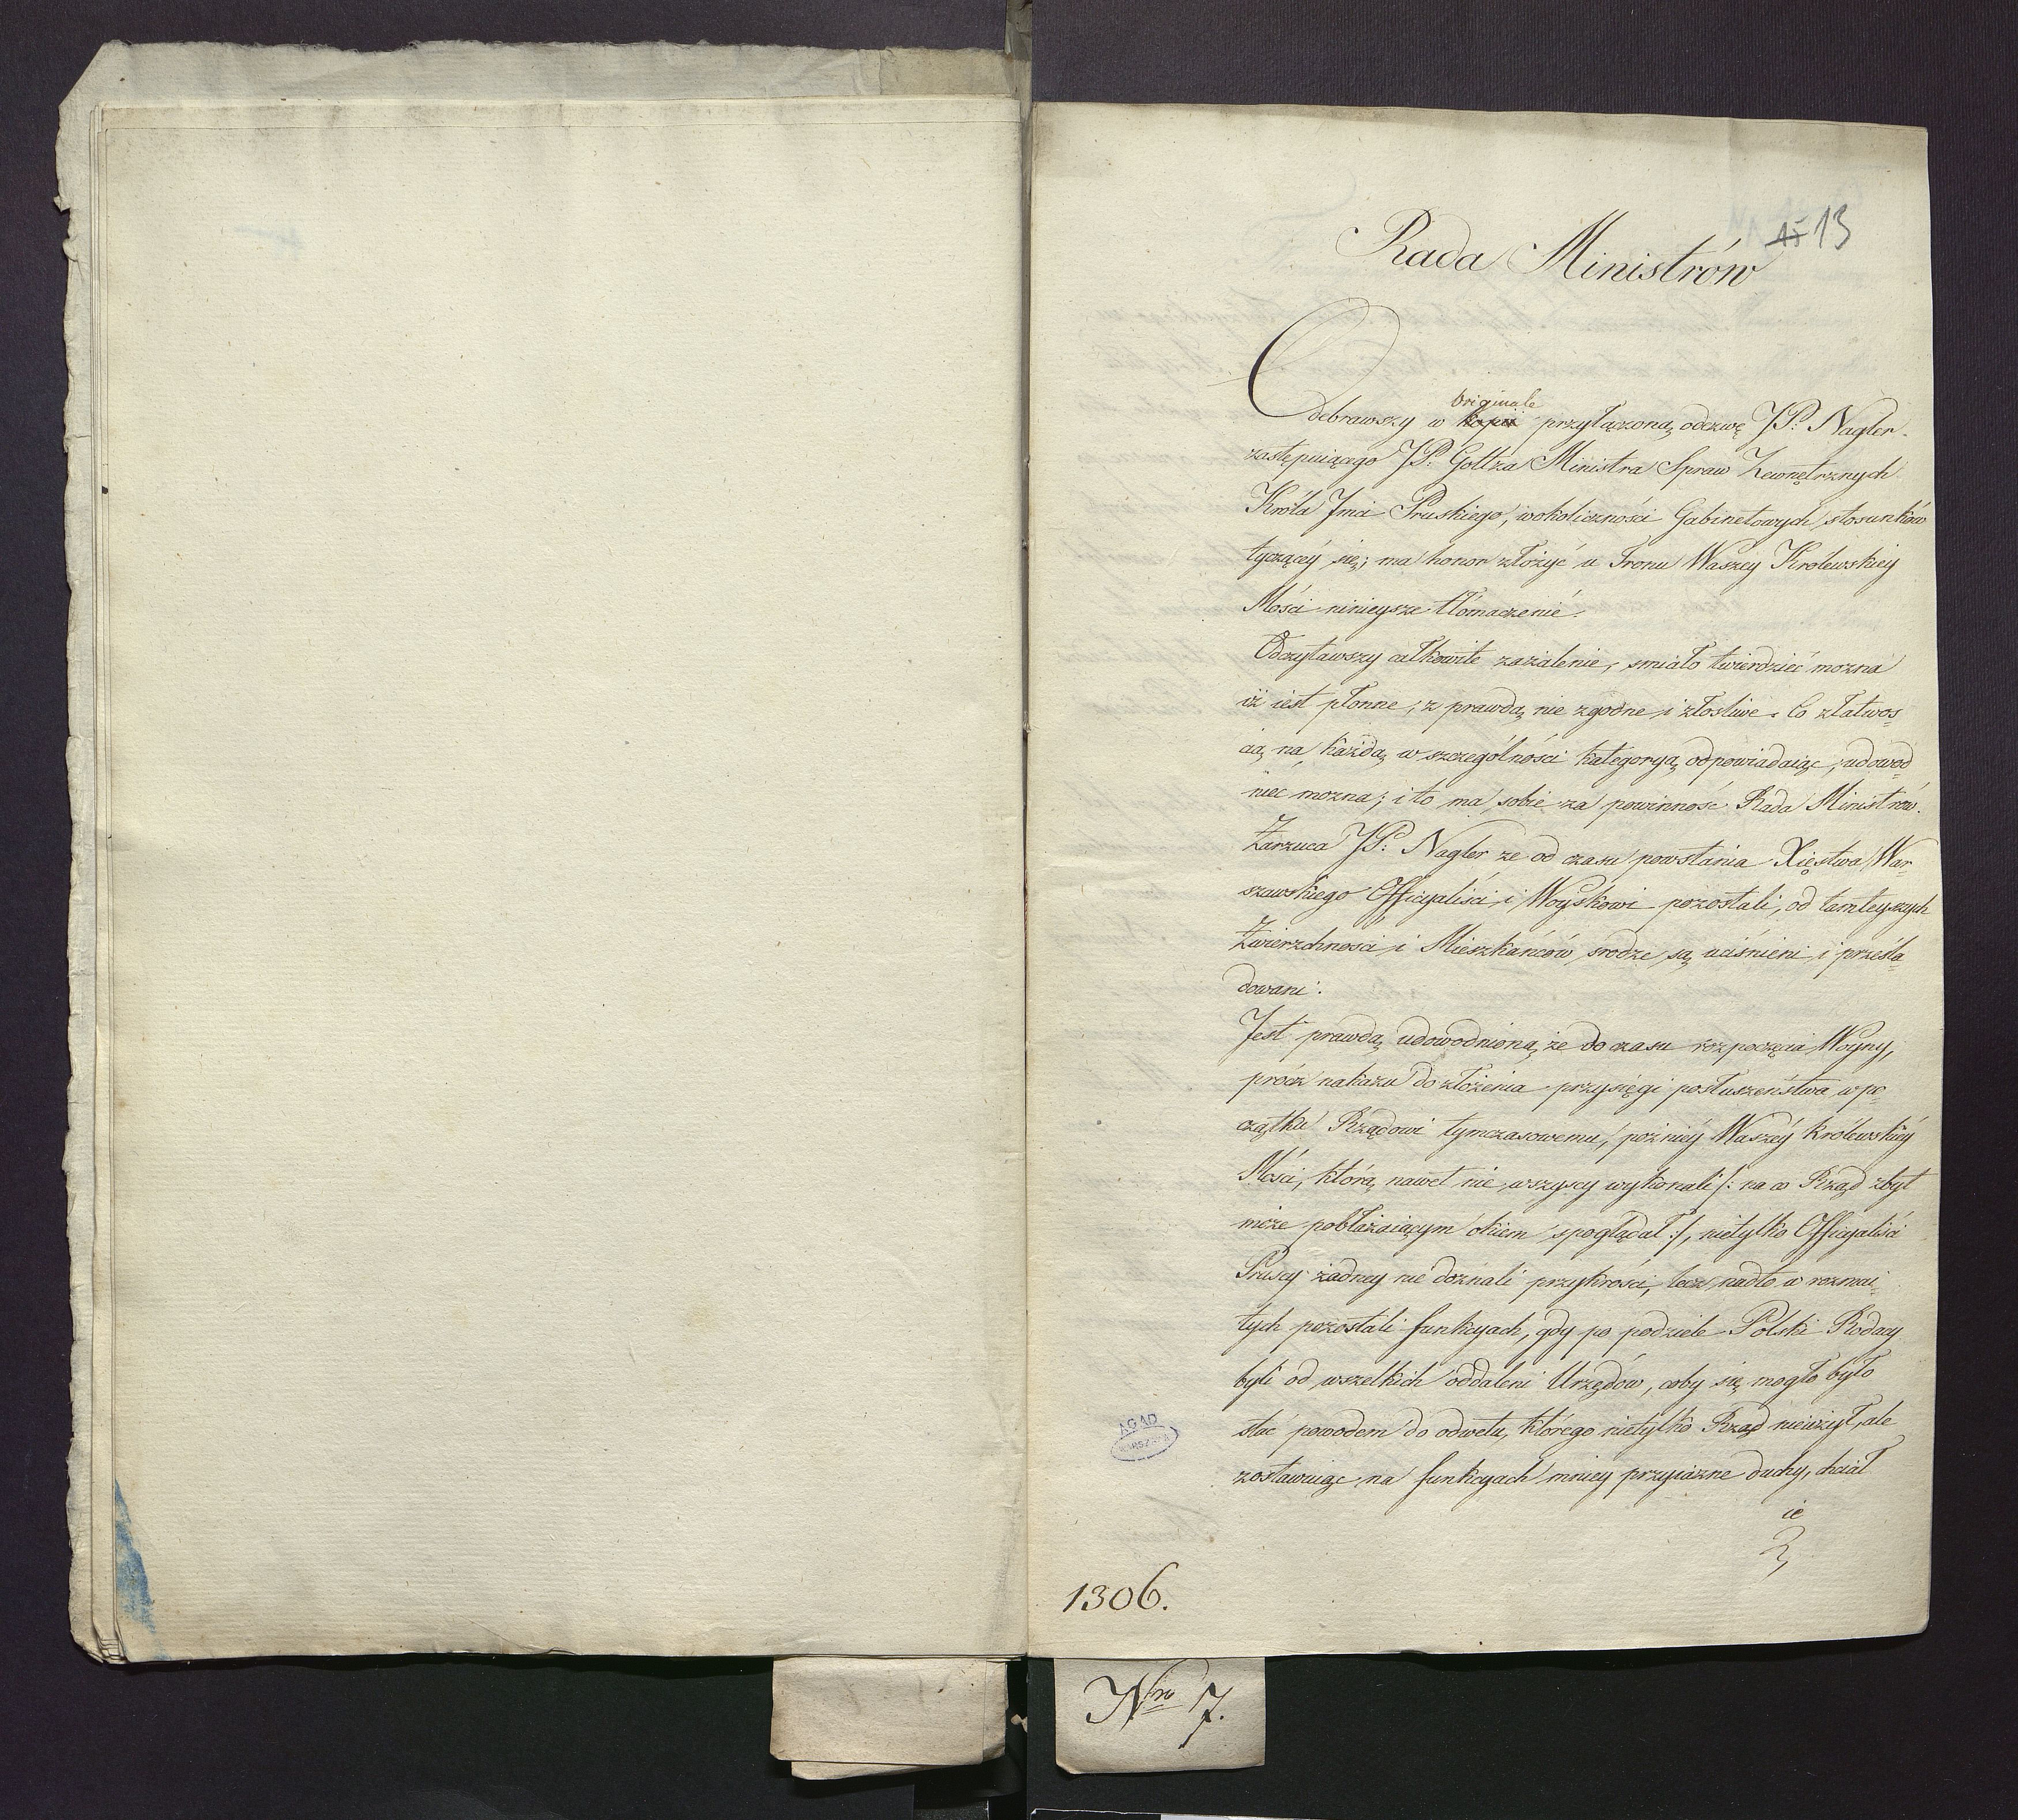 15 13
Rada Ministrów
Originale
Odebrawszy w kopii przyłączoną odezwę JP: Nagler
zastępuiącego JP: Goltza Ministra Spraw Zewnętrznych
Króla Jmci Pruskiego, wokoliczności Gabinetowych stosunków
tyczącéy się; ma honor złożyć u Tronu Waszey Królewskiey
Mości ninieysze tłómaczenié.
Odczytawszy całkowite zażalenie, smiało twierdzieć mozna
iż iest płonne, z prawdą nie zgodne i złosliwe. Co złatwos=
cią na każdą w szczególności kategoryą odpowiadaiąc, udowod=
nieć mozna; i to ma sobie za powinność Rada Ministrów.
Zarzuca JP: Nagler ze od czasu powstania Xięstwa War=
szawskiego Officyaliści i Woyskowi pozostali, od tamteyszych
Zwierzchności i Mieszkańców srodze są uciśnieni i prześla=
dowani.
Jest prawdą udowodnioną, że do czasu rozpoczęcia Woyny,
prócz nakazu do złożenia przysięgi posłuszeństwa w po=
czątku Rządowi tymczasowemu, poźniéy Waszéy Królewskiéy
Mości, którą nawet nie wszyscy wykonali /: na co Rząd zbyt
może pobłażaiącym okiem spoglądał :/, nietylko Officyaliści
Pruscy żadney nie doznali przykrości, lecz nadto w rozmai=
tych pozostali funkcyach, gdy po podziele Polski Rodacy
byli od wszelkich oddaleni Urzędów, coby się mogło było
stać powodem do odwetu, którego nietylko Rząd nieużył, ale
zostawuiąc na funkcyach mniey przyiazne duchy, chciał
ie
AGAD
WARSZAWA
1306.
Nro 7.